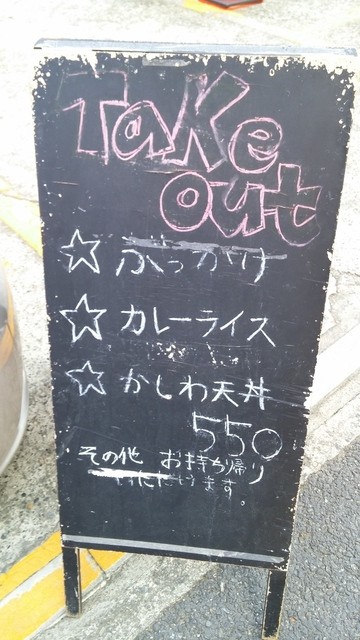 Take
out
☆ ぶっかけ
☆ カレーライス
☆ かしわ天丼
550
その他 お持ち帰り
いただけます。